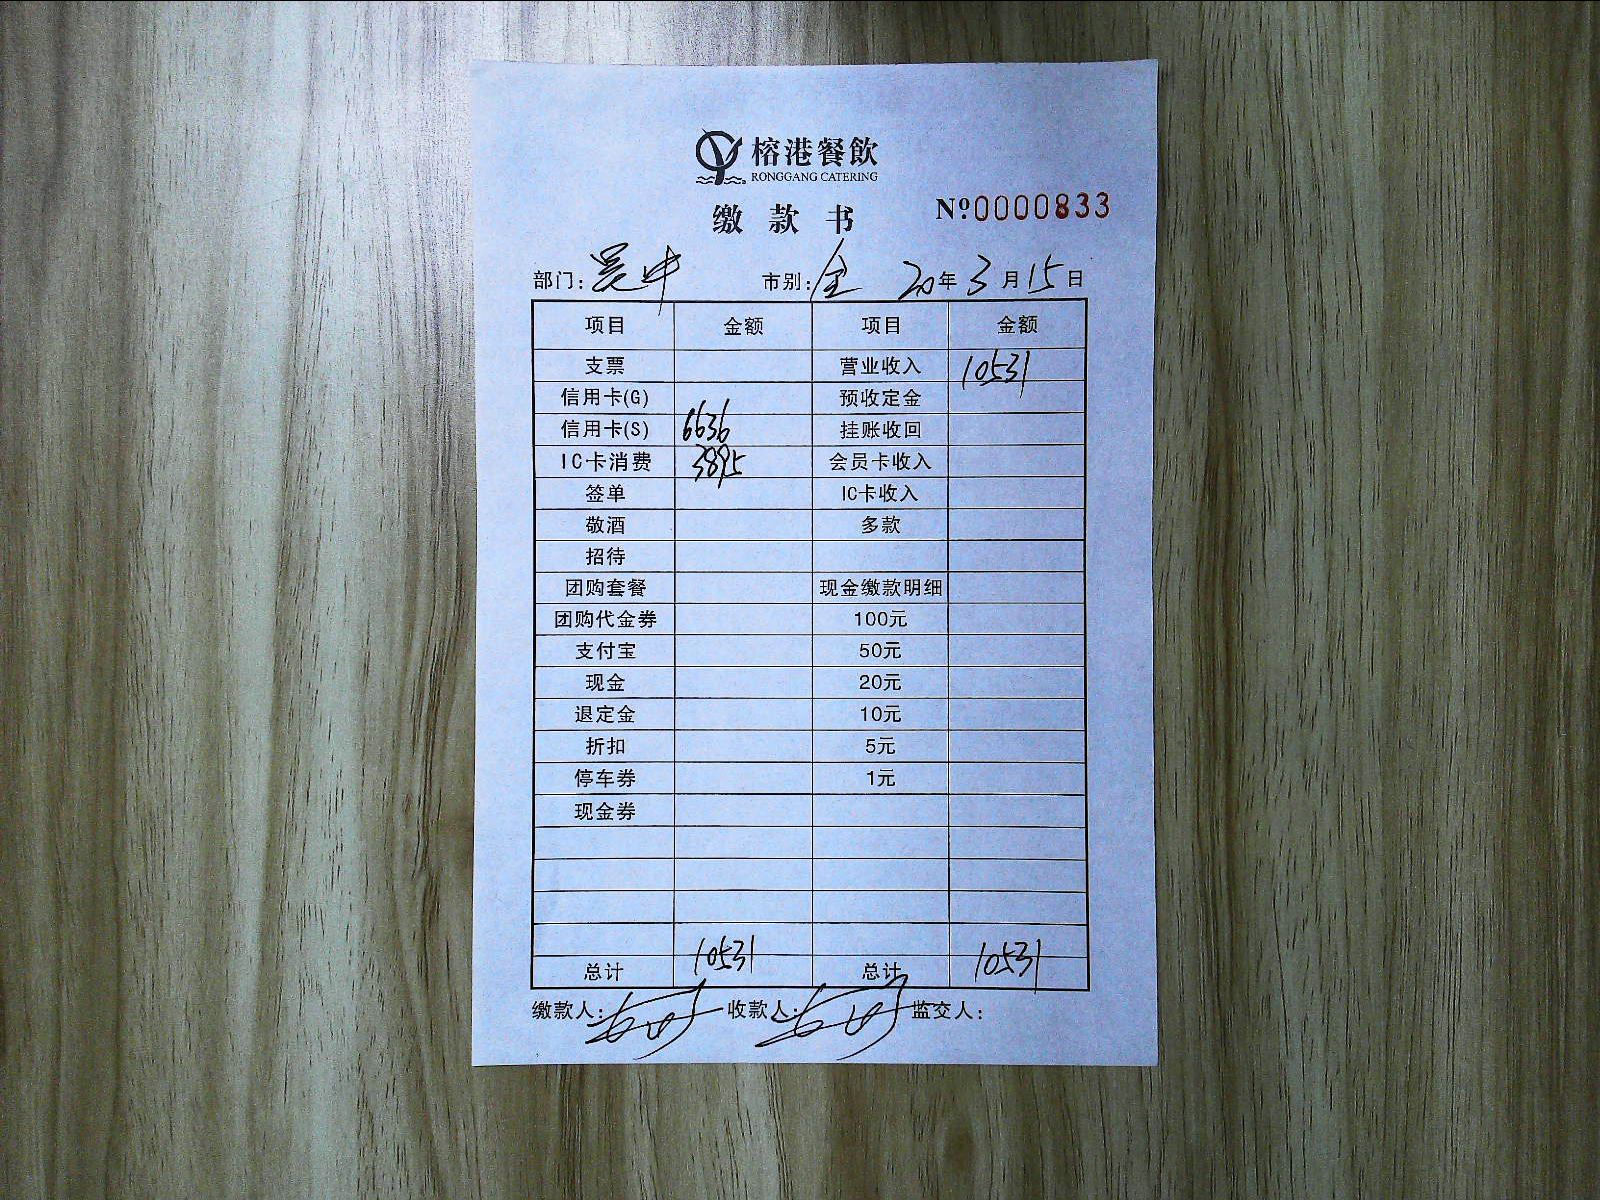 榕港餐飲
RONGGANG CATERING
缴款书
Nº0000833
部门：吴中 市别：全 20年3月15日
项目 金额 项目 金额
支票 营业收入 10531
信用卡(G) 预收定金
信用卡(S) 6636 挂账收回
IC卡消费 3895 会员卡收入
签单 IC卡收入
敬酒 多款
招待
团购套餐 现金缴款明细
团购代金券 100元
支付宝 50元
现金 20元
退定金 10元
折扣 5元
停车券 1元
现金券
总计 10531 总计 10531
缴款人： 收款人： 监交人：